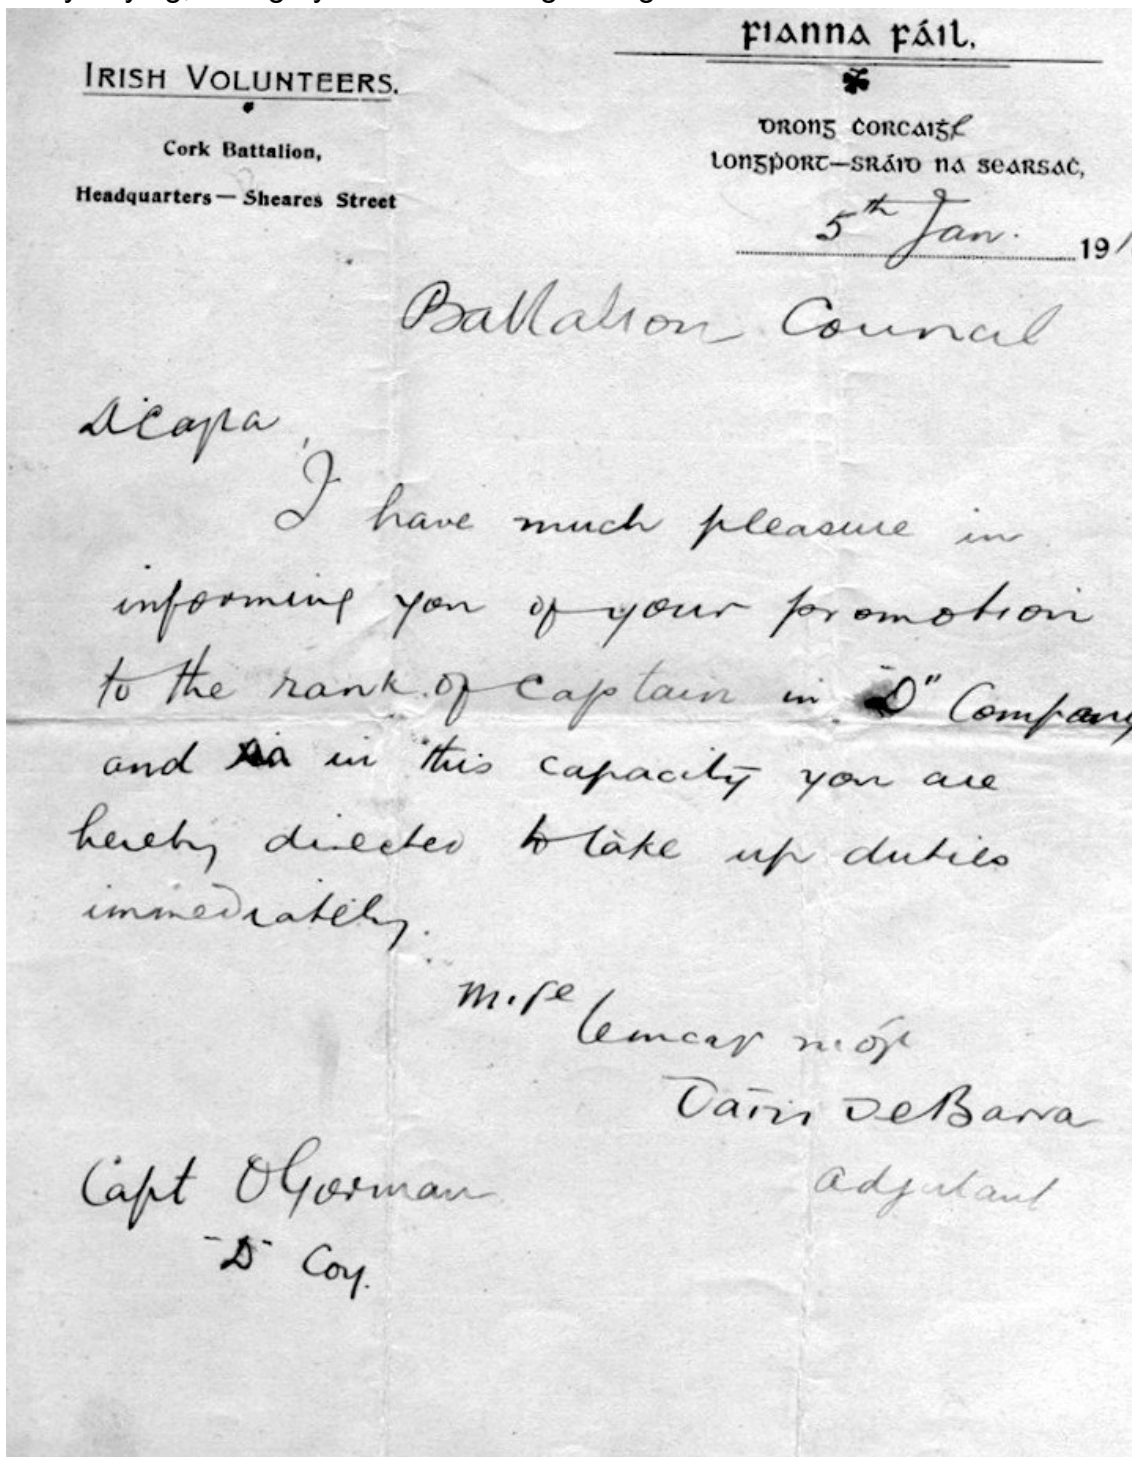 IRISH VOLUNTEERS.
Cork Battalion,
Headquarters — Sheares Street
FIANNA FÁIL,
DRONG ĊORCAIGE
LONGṖORT—SRÁID NA SEARSAĊ,
5th Jan. 191
Battalion Council
A Ċapa,
I have much pleasure in
informing you of your promotion
to the rank of Captain in "D" Company
and in this capacity you are
hereby directed to take up duties
immediately.
Mise
le meas mór
De Barra
Adjutant
Capt O'Gorman
"D" Coy.